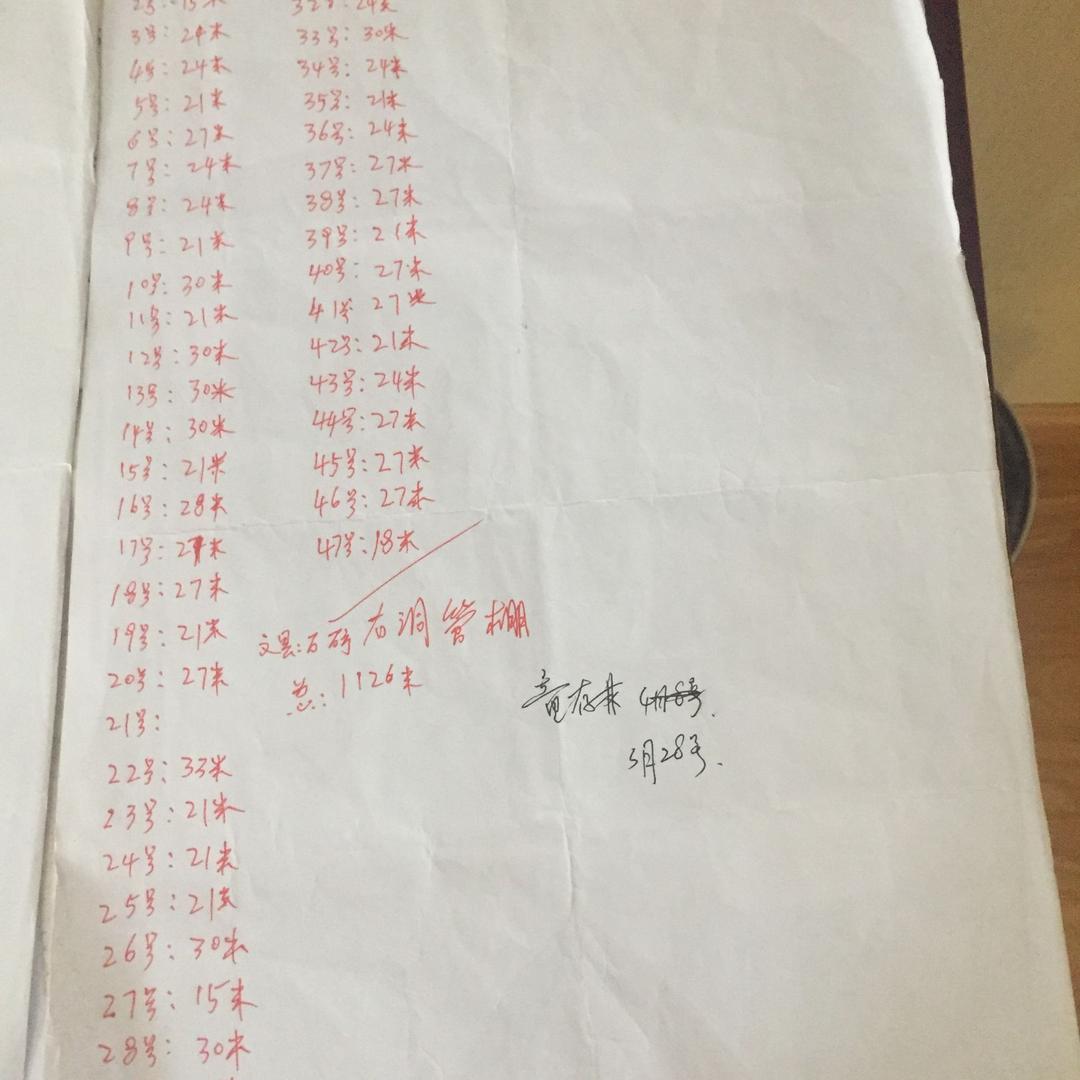 2号:15米
3号:24米
4号:24米
5号:21米
6号:27米
7号:24米
8号:24米
9号:21米
10号:30米
11号:21米
12号:30米
13号:30米
14号:30米
15号:21米
16号:28米
17号:27米
18号:27米
19号:21米
20号:27米
21号:
22号:33米
23号:21米
24号:21米
25号:21米
26号:30米
27号:15米
28号:30米
32号:24米
33号:30米
34号:24米
35号:21米
36号:24米
37号:27米
38号:27米
39号:21米
40号:27米
41号 27米
42号:21米
43号:24米
44号:27米
45号:27米
46号:27米
47号:18米
右洞管棚
总:1126米
4月8号.
3月28号.